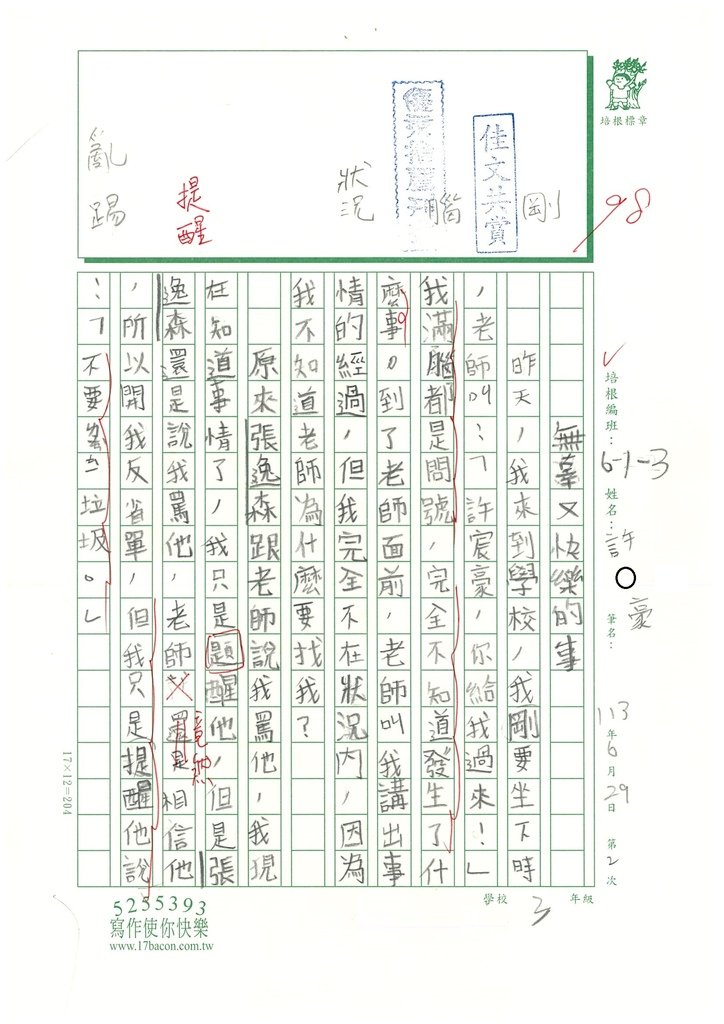 培根標章
98
剛
佳文共賞
腦
狀況
提醒
亂踢
培根編班：6-1-3
姓名：許豪
筆名：
113年6月29日 第2次
學校 3 年級
無辜又快樂的事
昨天，我來到學校，我剛要坐下時
，老師叫：「許宸豪，你給我過來！」
我滿腦都是問號，完全不知道發生了什
麼事。到了老師面前，老師叫我講出事
情的經過，但我完全不在狀況內，因為
我不知道老師為什麼要找我？
原來張逸森跟老師說我罵他，我現
在知道事情了，我只是題醒他，但是張
逸森還是說我罵他，老師還是相信他
竟然
，所以開我反省單，但我只是提醒他說
：「不要亂丟垃圾。」
17×12=204
5255393
寫作使你快樂
www.17bacon.com.tw